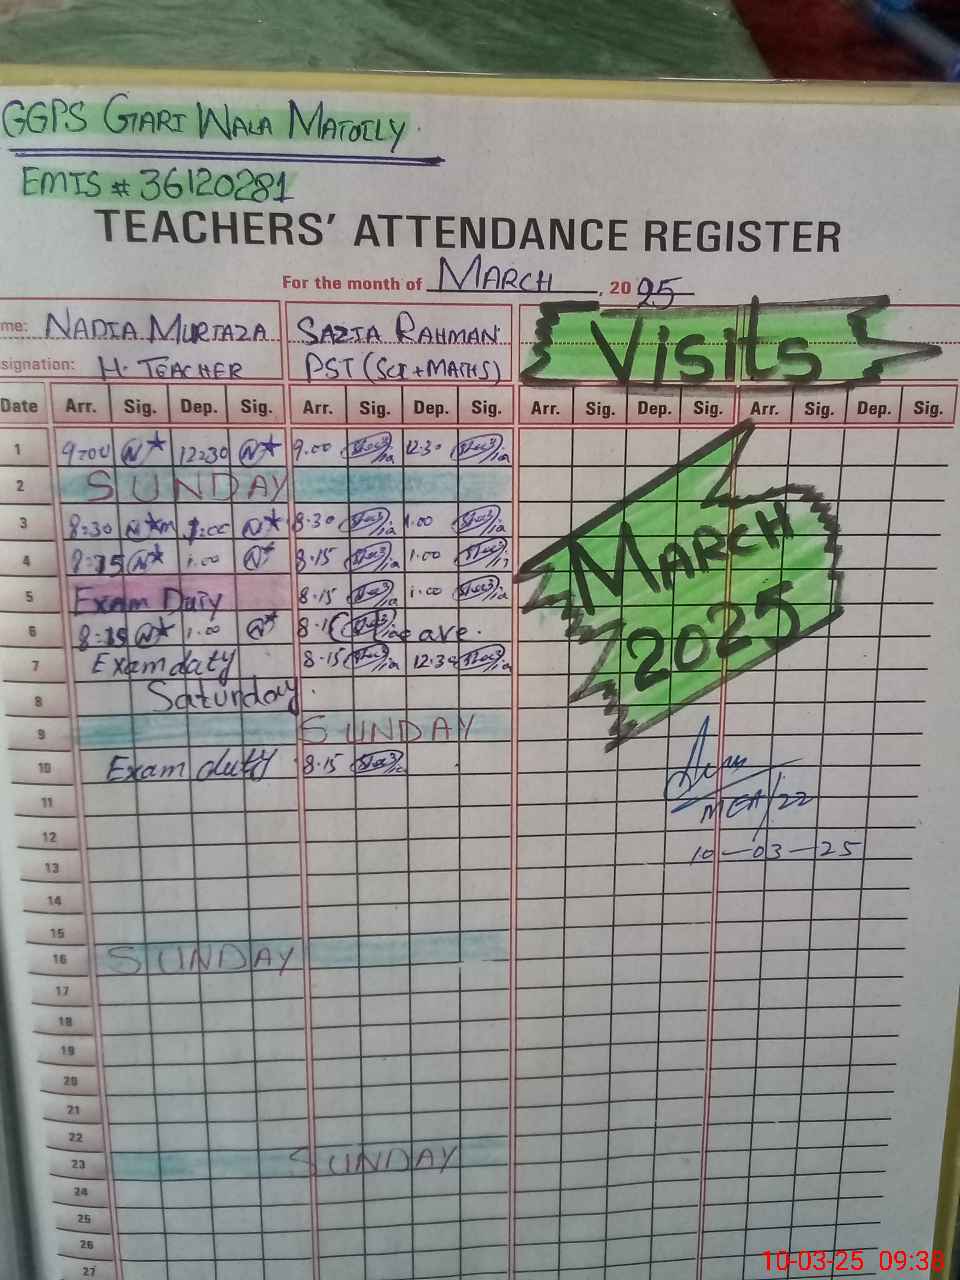 GGPS GARI WALA MATOILY.
EMIS # 36120281
TEACHERS' ATTENDANCE REGISTER
For the month of MARCH, 2025
me: NADIA MURTAZA SAZIA RAHMAN Visits
signation: H. TEACHER PST (SCI + MATHS)
Date Arr. Sig. Dep. Sig. Arr. Sig. Dep. Sig. Arr. Sig. Dep. Sig. Arr. Sig. Dep. Sig.
1 9:00 12:30 9.00 12.30
2 SUNDAY
3 8:30 1:00 8.30 1.00
4 8:15 1.00 8.15 1.00
5 Exam Duty 8.15 1.00
6 8:15 1.00 leave.
7 Exam duty 8.15 12.30
8 Saturday.
9 SUNDAY
10 Exam duty 8.15
MARCH
2025
MEA/22
10-03-25
11
12
13
14
15
16 SUNDAY
17
18
19
20
21
22
23 SUNDAY
24
25
26
27
10-03-25 09:38